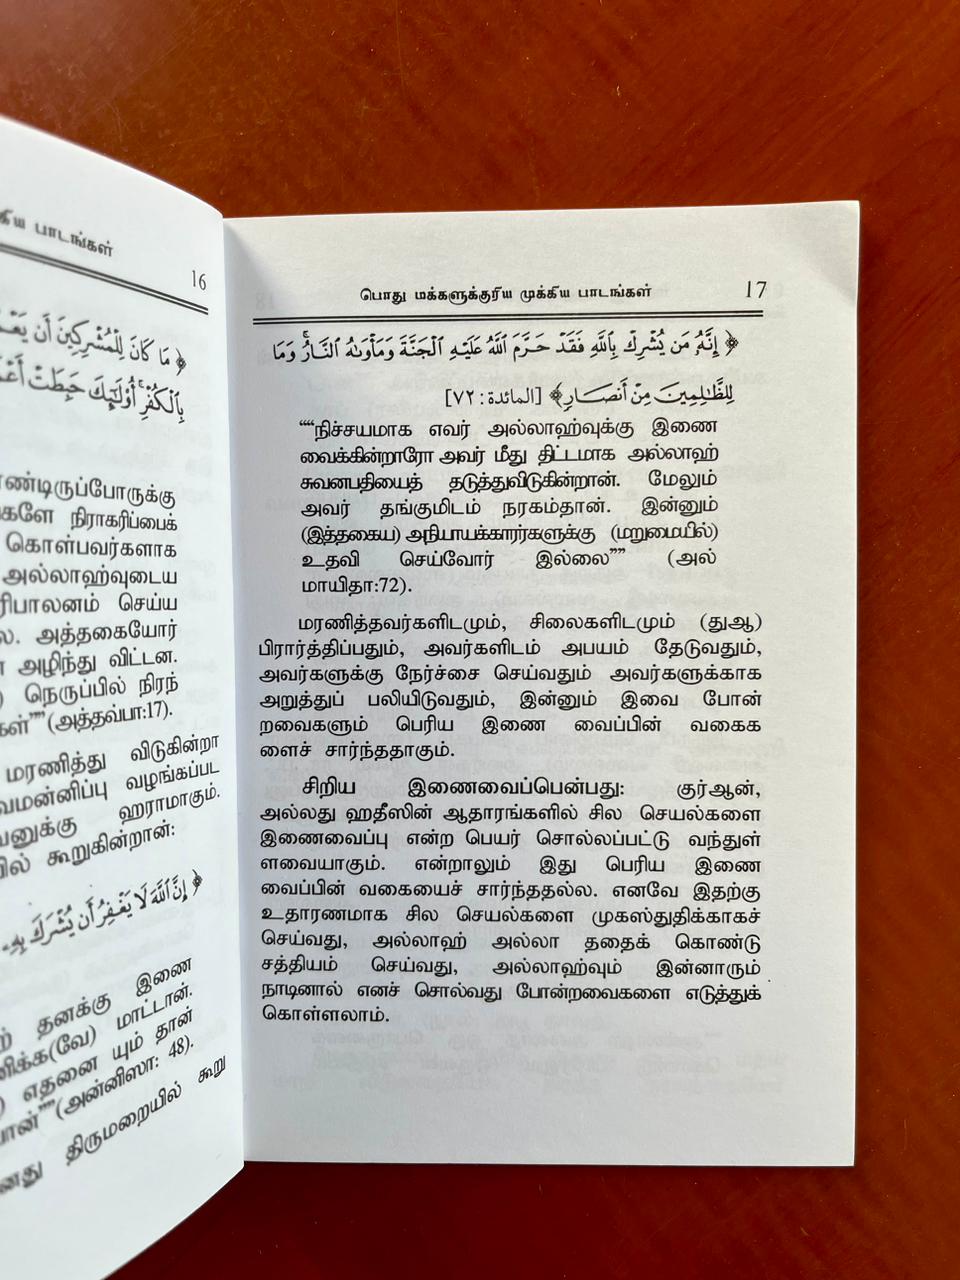 கிய பாடங்கள்
16
﴿ مَا كَانَ لِلْمُشْرِكِينَ أَن
بِالْكُفْرِ أُوْلَٰٓئِكَ حَبِطَتْ
நிராகரிப்பைக்
கொள்பவர்களாக
அல்லாஹ்வுடைய
செய்ய
அத்தகையோர்
அழிந்து விட்டன.
நெருப்பில் நிரந்
(அத்தவ்பா:17).
மரணித்து விடுகின்றா
வழங்கப்பட
ஹராமாகும்.
கூறுகின்றான்:
﴿ إِنَّ ٱللَّهَ لَا يَغْفِرُ أَن يُشْرَكَ بِهِۦ
தனக்கு இணை
மாட்டான்.
எதனை யும் தான்
(அன்னிஸா: 48).
திருமறையில் கூறு
பொது மக்களுக்குரிய முக்கிய பாடங்கள்
17
﴿ إِنَّهُۥ مَن يُشْرِكْ بِٱللَّهِ فَقَدْ حَرَّمَ ٱللَّهُ عَلَيْهِ ٱلْجَنَّةَ وَمَأْوَىٰهُ ٱلنَّارُ ۖ وَمَا
لِلظَّٰلِمِينَ مِنْ أَنصَارٍ ﴾ [المائدة: ٧٢]
““நிச்சயமாக எவர் அல்லாஹ்வுக்கு இணை
வைக்கின்றாரோ அவர் மீது திட்டமாக அல்லாஹ்
சுவனபதியைத் தடுத்துவிடுகின்றான். மேலும்
அவர் தங்குமிடம் நரகம்தான். இன்னும்
(இத்தகைய) அநியாயக்காரர்களுக்கு (மறுமையில்)
உதவி செய்வோர் இல்லை”” (அல்
மாயிதா:72).
மரணித்தவர்களிடமும், சிலைகளிடமும் (துஆ)
பிரார்த்திப்பதும், அவர்களிடம் அபயம் தேடுவதும்,
அவர்களுக்கு நேர்ச்சை செய்வதும் அவர்களுக்காக
அறுத்துப் பலியிடுவதும், இன்னும் இவை போன்
றவைகளும் பெரிய இணை வைப்பின் வகைக
ளைச் சார்ந்ததாகும்.
சிறிய இணைவைப்பென்பது: குர்ஆன்,
அல்லது ஹதீஸின் ஆதாரங்களில் சில செயல்களை
இணைவைப்பு என்ற பெயர் சொல்லப்பட்டு வந்துள்
ளவையாகும். என்றாலும் இது பெரிய இணை
வைப்பின் வகையைச் சார்ந்ததல்ல. எனவே இதற்கு
உதாரணமாக சில செயல்களை முகஸ்துதிக்காகச்
செய்வது, அல்லாஹ் அல்லா ததைக் கொண்டு
சத்தியம் செய்வது, அல்லாஹ்வும் இன்னாரும்
நாடினால் எனச் சொல்வது போன்றவைகளை எடுத்துக்
கொள்ளலாம்.